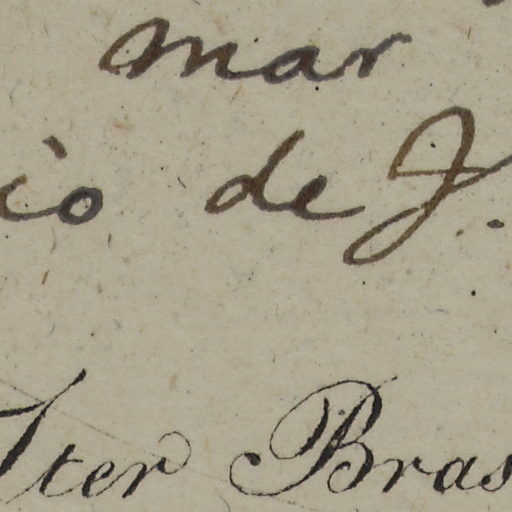 mar
io de J.
Iter Bras